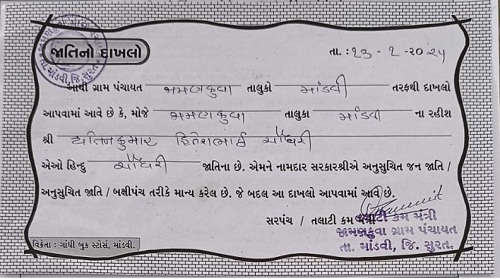 જાતિનો દાખલો
તા. માંડવી, જિ. સુરત.
તા. :૧૩ - ૧ -૨૦૨૫
આથી ગ્રામ પંચાયત જામણકુવા તાલુકો માંડવી તરફથી દાખલો
આપવામાં આવે છે કે, મોજે જામણકુવા તાલુકા માંડવી ના રહીશ
શ્રી હિતેશભાઈ ચૌધરી
એઓ હિન્દુ ચૌધરી જાતિના છે. એમને નામદાર સરકારશ્રીએ અનુસુચિત જન જાતિ /
અનુસુચિત જાતિ / બક્ષીપંચ તરીકે માન્ય કરેલ છે. જે બદલ આ દાખલો આપવામાં આવે છે.
સરપંચ / તલાટી કમ મંત્રી
તલાટી કમ મંત્રી
જામણકુવા ગ્રામ પંચાયત
તા. માંડવી, જિ. સુરત.
વિક્રેતા : ગાંધી બુક સ્ટોર્સ, માંડવી.